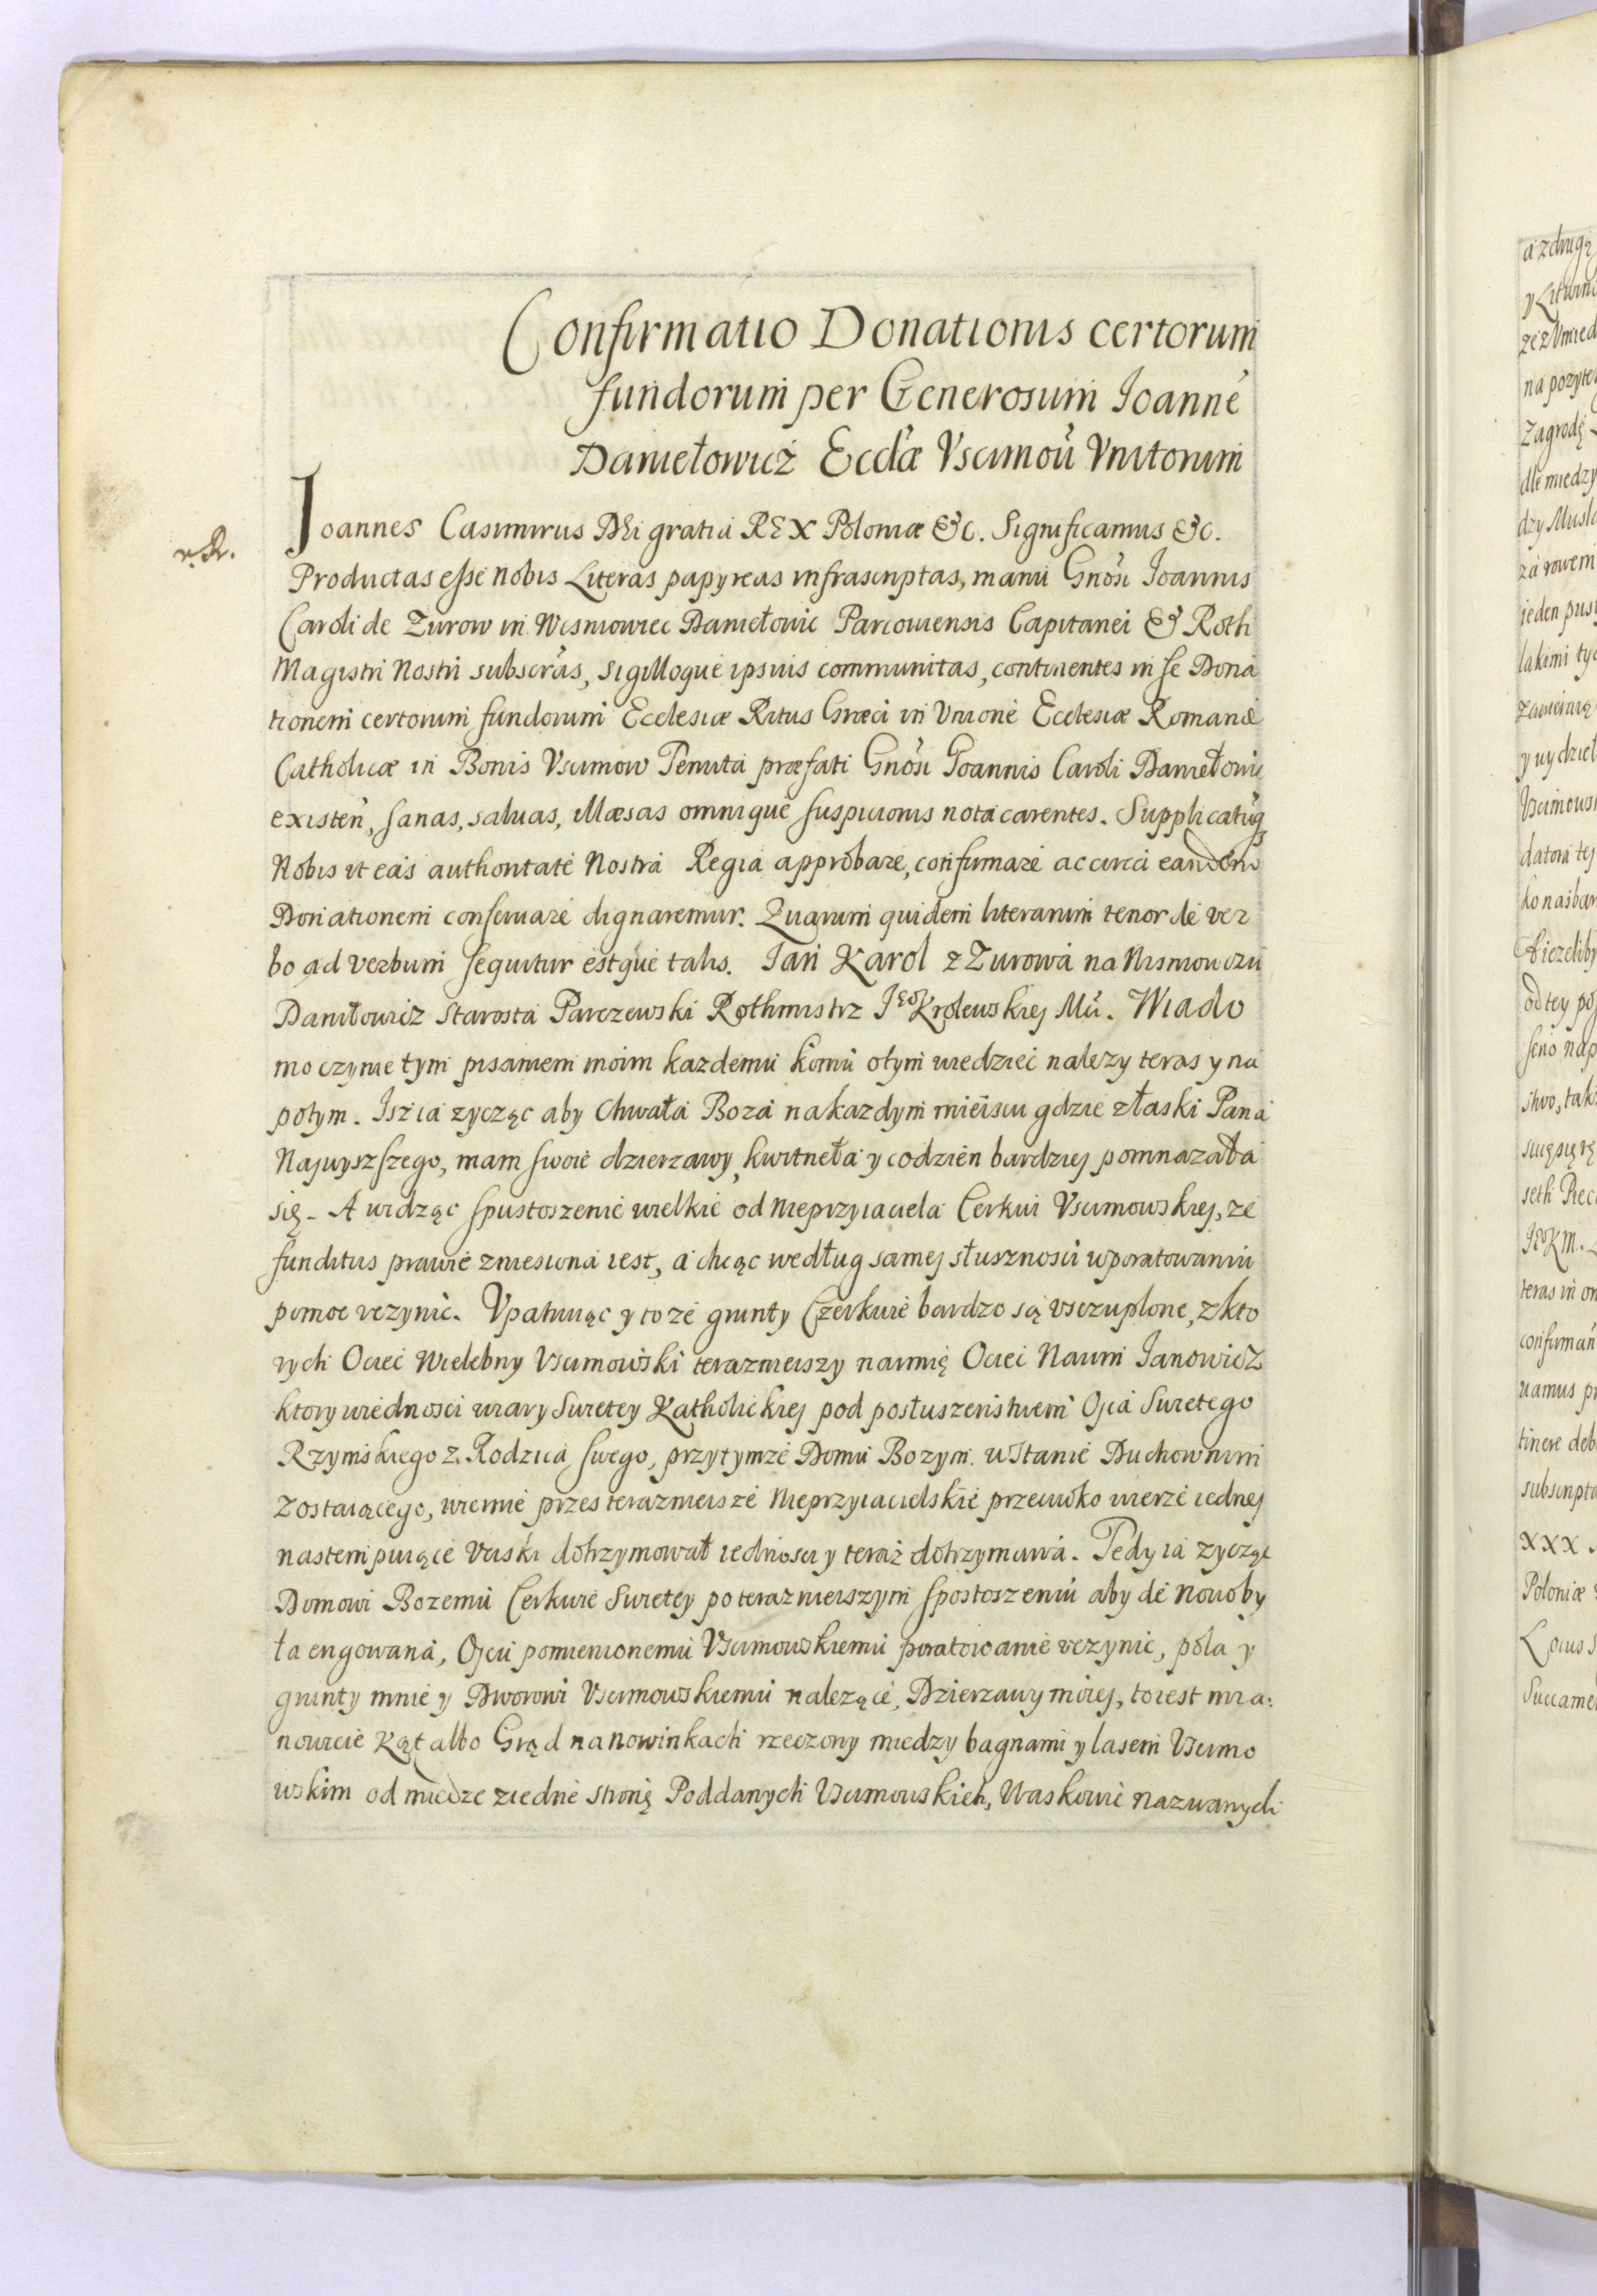 Confirmatio Donationis certorum
fundorum per Generosum Joanné
Daniełowicż Eccl'æ Vscimou Vnitorum
Joannes Casimirus Dei gratia REX Poloniæ &c. Significamus &c.
r. R.
Productas esse nobis Literas papyreas infrascriptas, manu Gnosi Joannis
Caroli de Zurow in Wisniowiec Daniełowic Parcouiensis Capitanei & Roth
Magistri Nostri subscras, sigilloque ipsius communitas, continentes in se Dona
tionem certorum fundorum Ecclesiæ Ritus Græci in Vnione Ecclesiæ Romanæ
Catholicæ in Bonis Vscimow Tenuta præfati Gnosi Joannis Caroli Daniełowic
existen, sanas, saluas, illæsas omnique suspicionis nota carentes. Supplicatuq
Nobis ut eas authoritate Nostra Regia approbare, confirmare ac circa eandem
Donationem conseruare dignaremur. Quarum quidem literarum tenor de ver
bo ad verbum sequitur estque talis. Jan Karol z Zurowa na Wisniowczu
Daniłowicz Starosta Parczewski Rothmistrz Jeo Krolewskiej Mci. Wiado
mo czynie tym pisaniem moim kazdemu komu otym wiedziec nalezy teras y na
potym. Jsz ia zycząc aby Chwała Boza nakazdym mieiscu gdzie złaski Pana
Najwyszszego, mam swoie dzierzawy kwitneła y codzien bardziej pomnazała
się. A widząc spustoszenie wielkie od Nieprzyiaciela Cerkwi Vscimowskiej, ze
funditus prawie zniesiona iest, a chcąc według samej słusznosci wporatowaniu
pomoc vczynic. Vpatruiąc y to ze grunty Czerkwie bardzo są vsczuplone, zkto
rych Ociec Wielebny Vscimowski terazniejszy naimię Ociec Naum Janowicz
ktory wiednosci wiary Swietey Katholickiej pod posłuszenstwem Ojca Swietego
Rzymskiego z Rodzica swego, przytymze Domu Bozym w Stanie Duchownym
zostaiącego, wiernie przes terazniejsze Nieprzyiacielskie przeciwko wierze iednej
nastempuiące Vciski dotrzymował iednosci y teraz dotrzymawa. Tedy ia zycząc
Domowi Bozemu Cerkwie Swietey poterazniejszym spostoszeniu aby de nouo by
ła erigowana, Ojcu pomienionemu Vscimowskiemu poratowanie vczynic, pola y
grunty mnie y Dworowi Vscimowskiemu nalezące, Dzierzawy moiej, toiest mia:
nowicie Kąt albo Grąd na Nowinkach rzeczony miedzy bagnami y lasem Vscimo
wskim od miedze ziedne stronę Poddanych Vscimowskich, Waskowic nazwanych